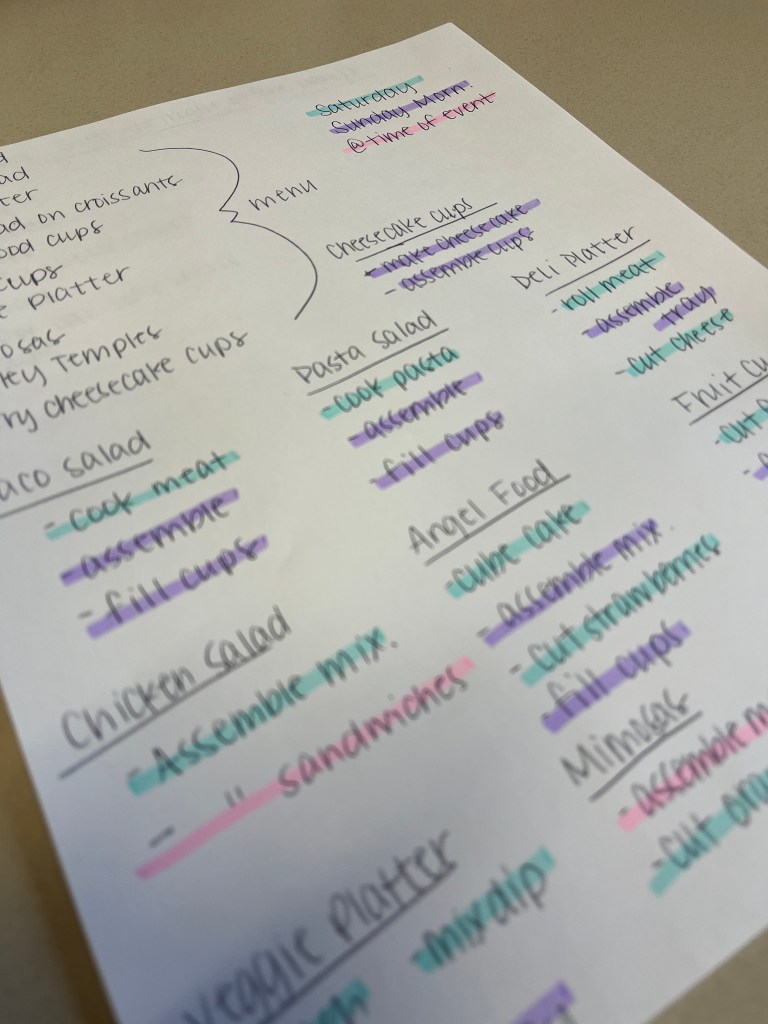 Saturday
Sunday Morn.
@time of event
ad on croissants
ood cups
cups
Platter
osas
ley Temples
ry cheesecake cups
menu
cheesecake cups
- make cheesecake
- assemble cups
Deli Platter
- roll meat
- assemble tray
- cut cheese
Pasta Salad
- cook pasta
- assemble
- fill cups
Fruit Cu
- cut
aco Salad
- cook meat
- assemble
- fill cups
Angel Food
- cube cake
- assemble mix.
- cut strawberries
- fill cups
Chicken Salad
- Assemble mix.
- " sandwiches
Mimosas
- assemble m
- cut ora
Veggie Platter
- mix dip